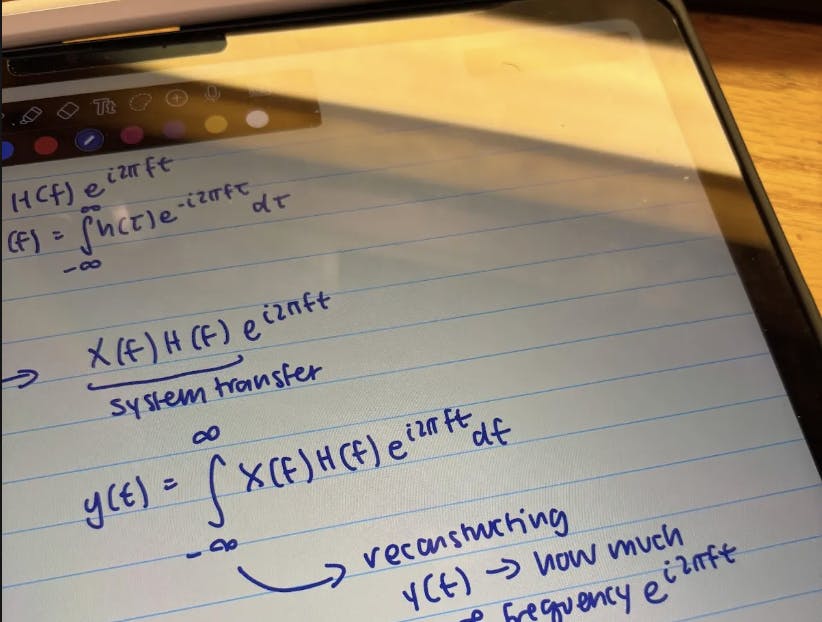 H(f) e^{i2πft}
(f) = ∫_{-∞}^{∞} h(τ) e^{-i2πfτ} dτ
→ X(f) H(f) e^{i2πft}
system transfer
y(t) = ∫_{-∞}^{∞} X(f) H(f) e^{i2πft} df
→ reconstructing
y(t) → how much
frequency e^{i2πft}